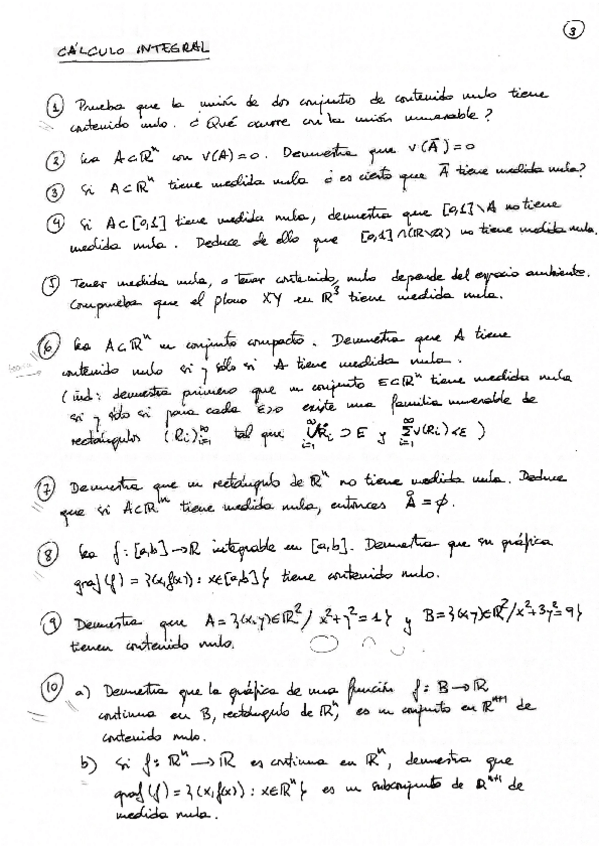 3
CÁLCULO INTEGRAL
1 Prueba que la unión de dos conjuntos de contenido nulo tiene
contenido nulo. ¿Qué ocurre con la unión numerable?
2 Sea A⊂ℝⁿ con v(A)=0. Demuestra que v(Ā)=0
3 Si A⊂ℝⁿ tiene medida nula ¿es cierto que Ā tiene medida nula?
4 Si A⊂[0,1] tiene medida nula, demuestra que [0,1]\A no tiene
medida nula. Deduce de ello que [0,1]∩(ℝ\ℚ) no tiene medida nula.
5 Tener medida nula, o tener contenido nulo depende del espacio ambiente.
Comprueba que el plano XY en ℝ³ tiene medida nula.
6 Sea A⊂ℝⁿ un conjunto compacto. Demuestra que A tiene
contenido nulo si y sólo si A tiene medida nula.
(ind: demuestra primero que un conjunto E⊂ℝⁿ tiene medida nula
si y sólo si para cada ε>0 existe una familia numerable de
rectángulos (Rᵢ)ᵢ₌₁^∞ tal que ∪ᵢ₌₁^∞ R̊ᵢ ⊃ E y Σᵢ₌₁^∞ v(Rᵢ)<ε)
7 Demuestra que un rectángulo de ℝⁿ no tiene medida nula. Deduce
que si A⊂ℝⁿ tiene medida nula, entonces Å = ∅.
8 Sea f:[a,b]→ℝ integrable en [a,b]. Demuestra que su gráfica
graf(f) = {(x,f(x)) : x∈[a,b]} tiene contenido nulo.
9 Demuestra que A = {(x,y)∈ℝ² / x²+y²=1} y B={(x,y)∈ℝ²/x²+3y²=9}
tienen contenido nulo.
10 a) Demuestra que la gráfica de una función f: B→ℝ
continua en B, rectángulo de ℝⁿ, es un conjunto en ℝⁿ⁺¹ de
contenido nulo.
b) Si f: ℝⁿ→ℝ es continua en ℝⁿ, demuestra que
graf(f) = {(x,f(x)) : x∈ℝⁿ} es un subconjunto de ℝⁿ⁺¹ de
medida nula.